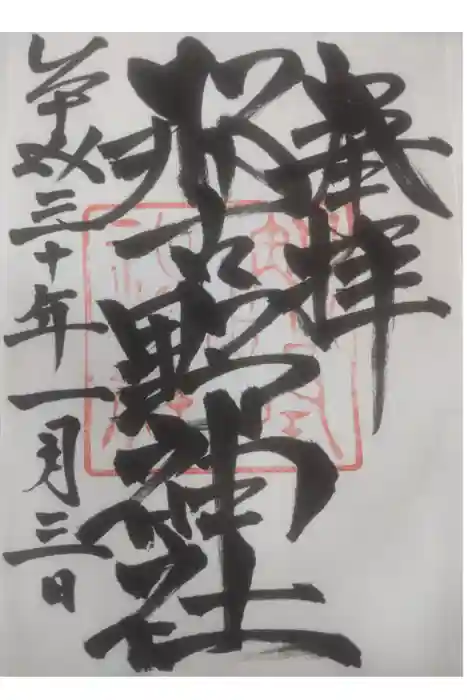 奉拝
古野神社
平成三十年一月三日